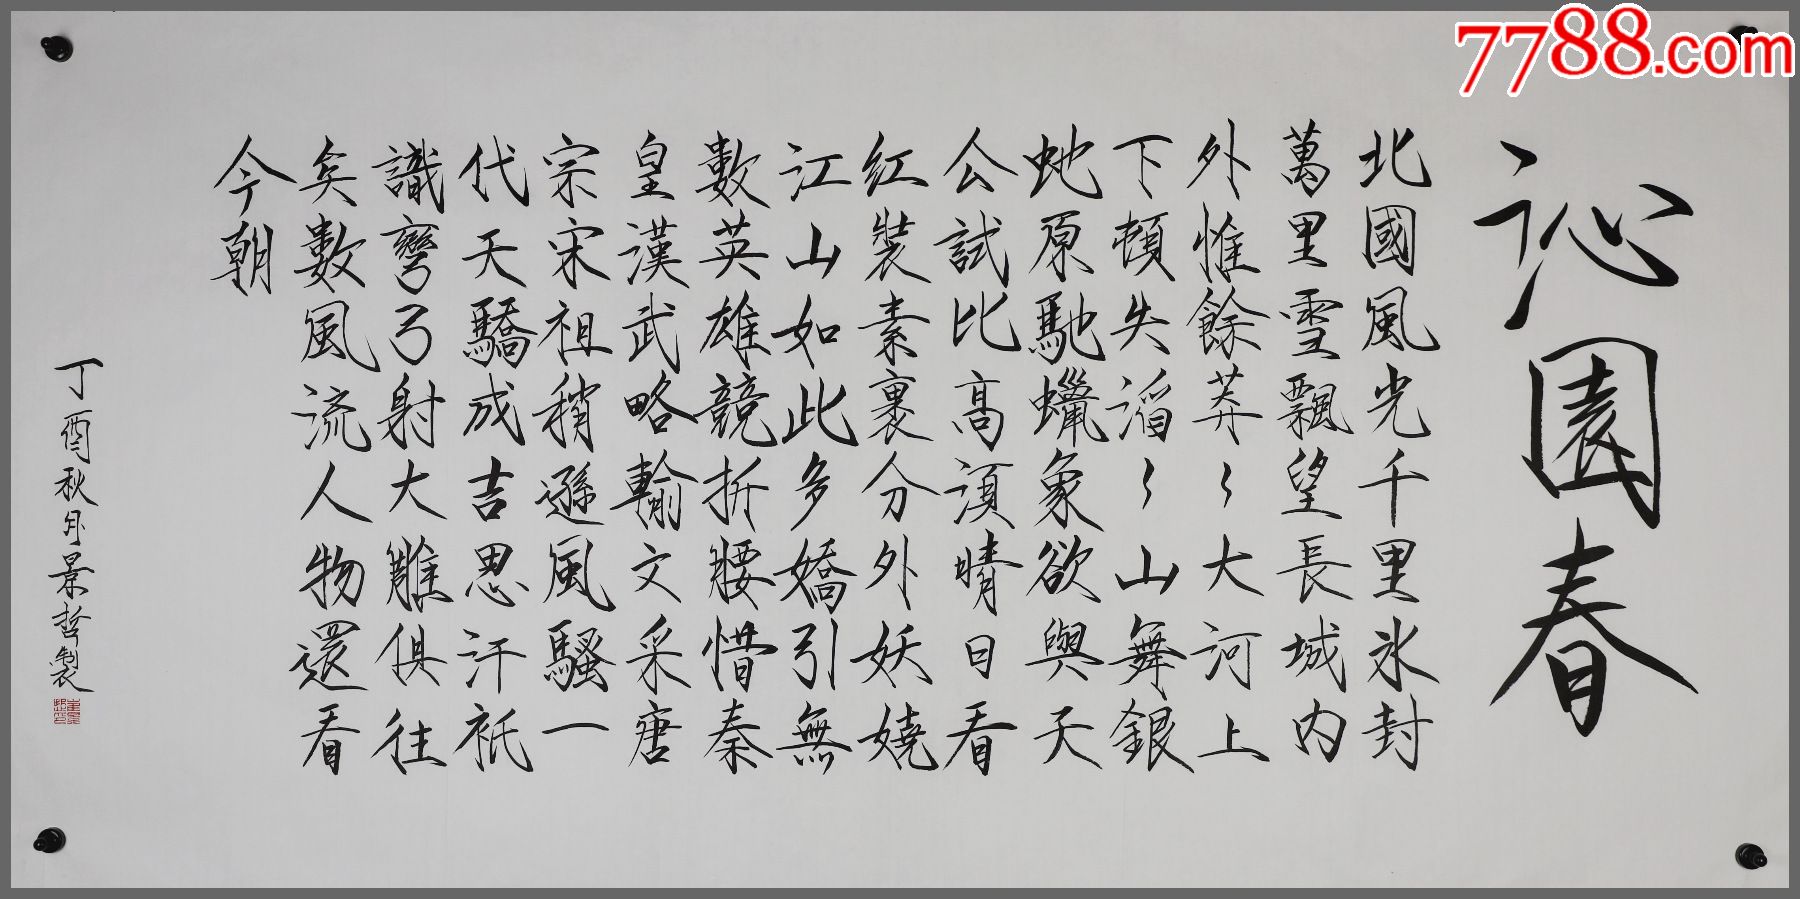 7788.com
沁園春
北國風光千里冰封
萬里雪飄望長城内
外惟餘莽〻大河上
下頓失滔〻山舞銀
蛇原馳蠟象欲與天
公試比高須晴日看
紅裝素裹分外妖嬈
江山如此多嬌引無
數英雄競折腰惜秦
皇漢武略輸文采唐
宗宋祖稍遜風騷一
代天驕成吉思汗衹
識彎弓射大雕俱往
矣數風流人物還看
今朝
丁酉秋月景哲製